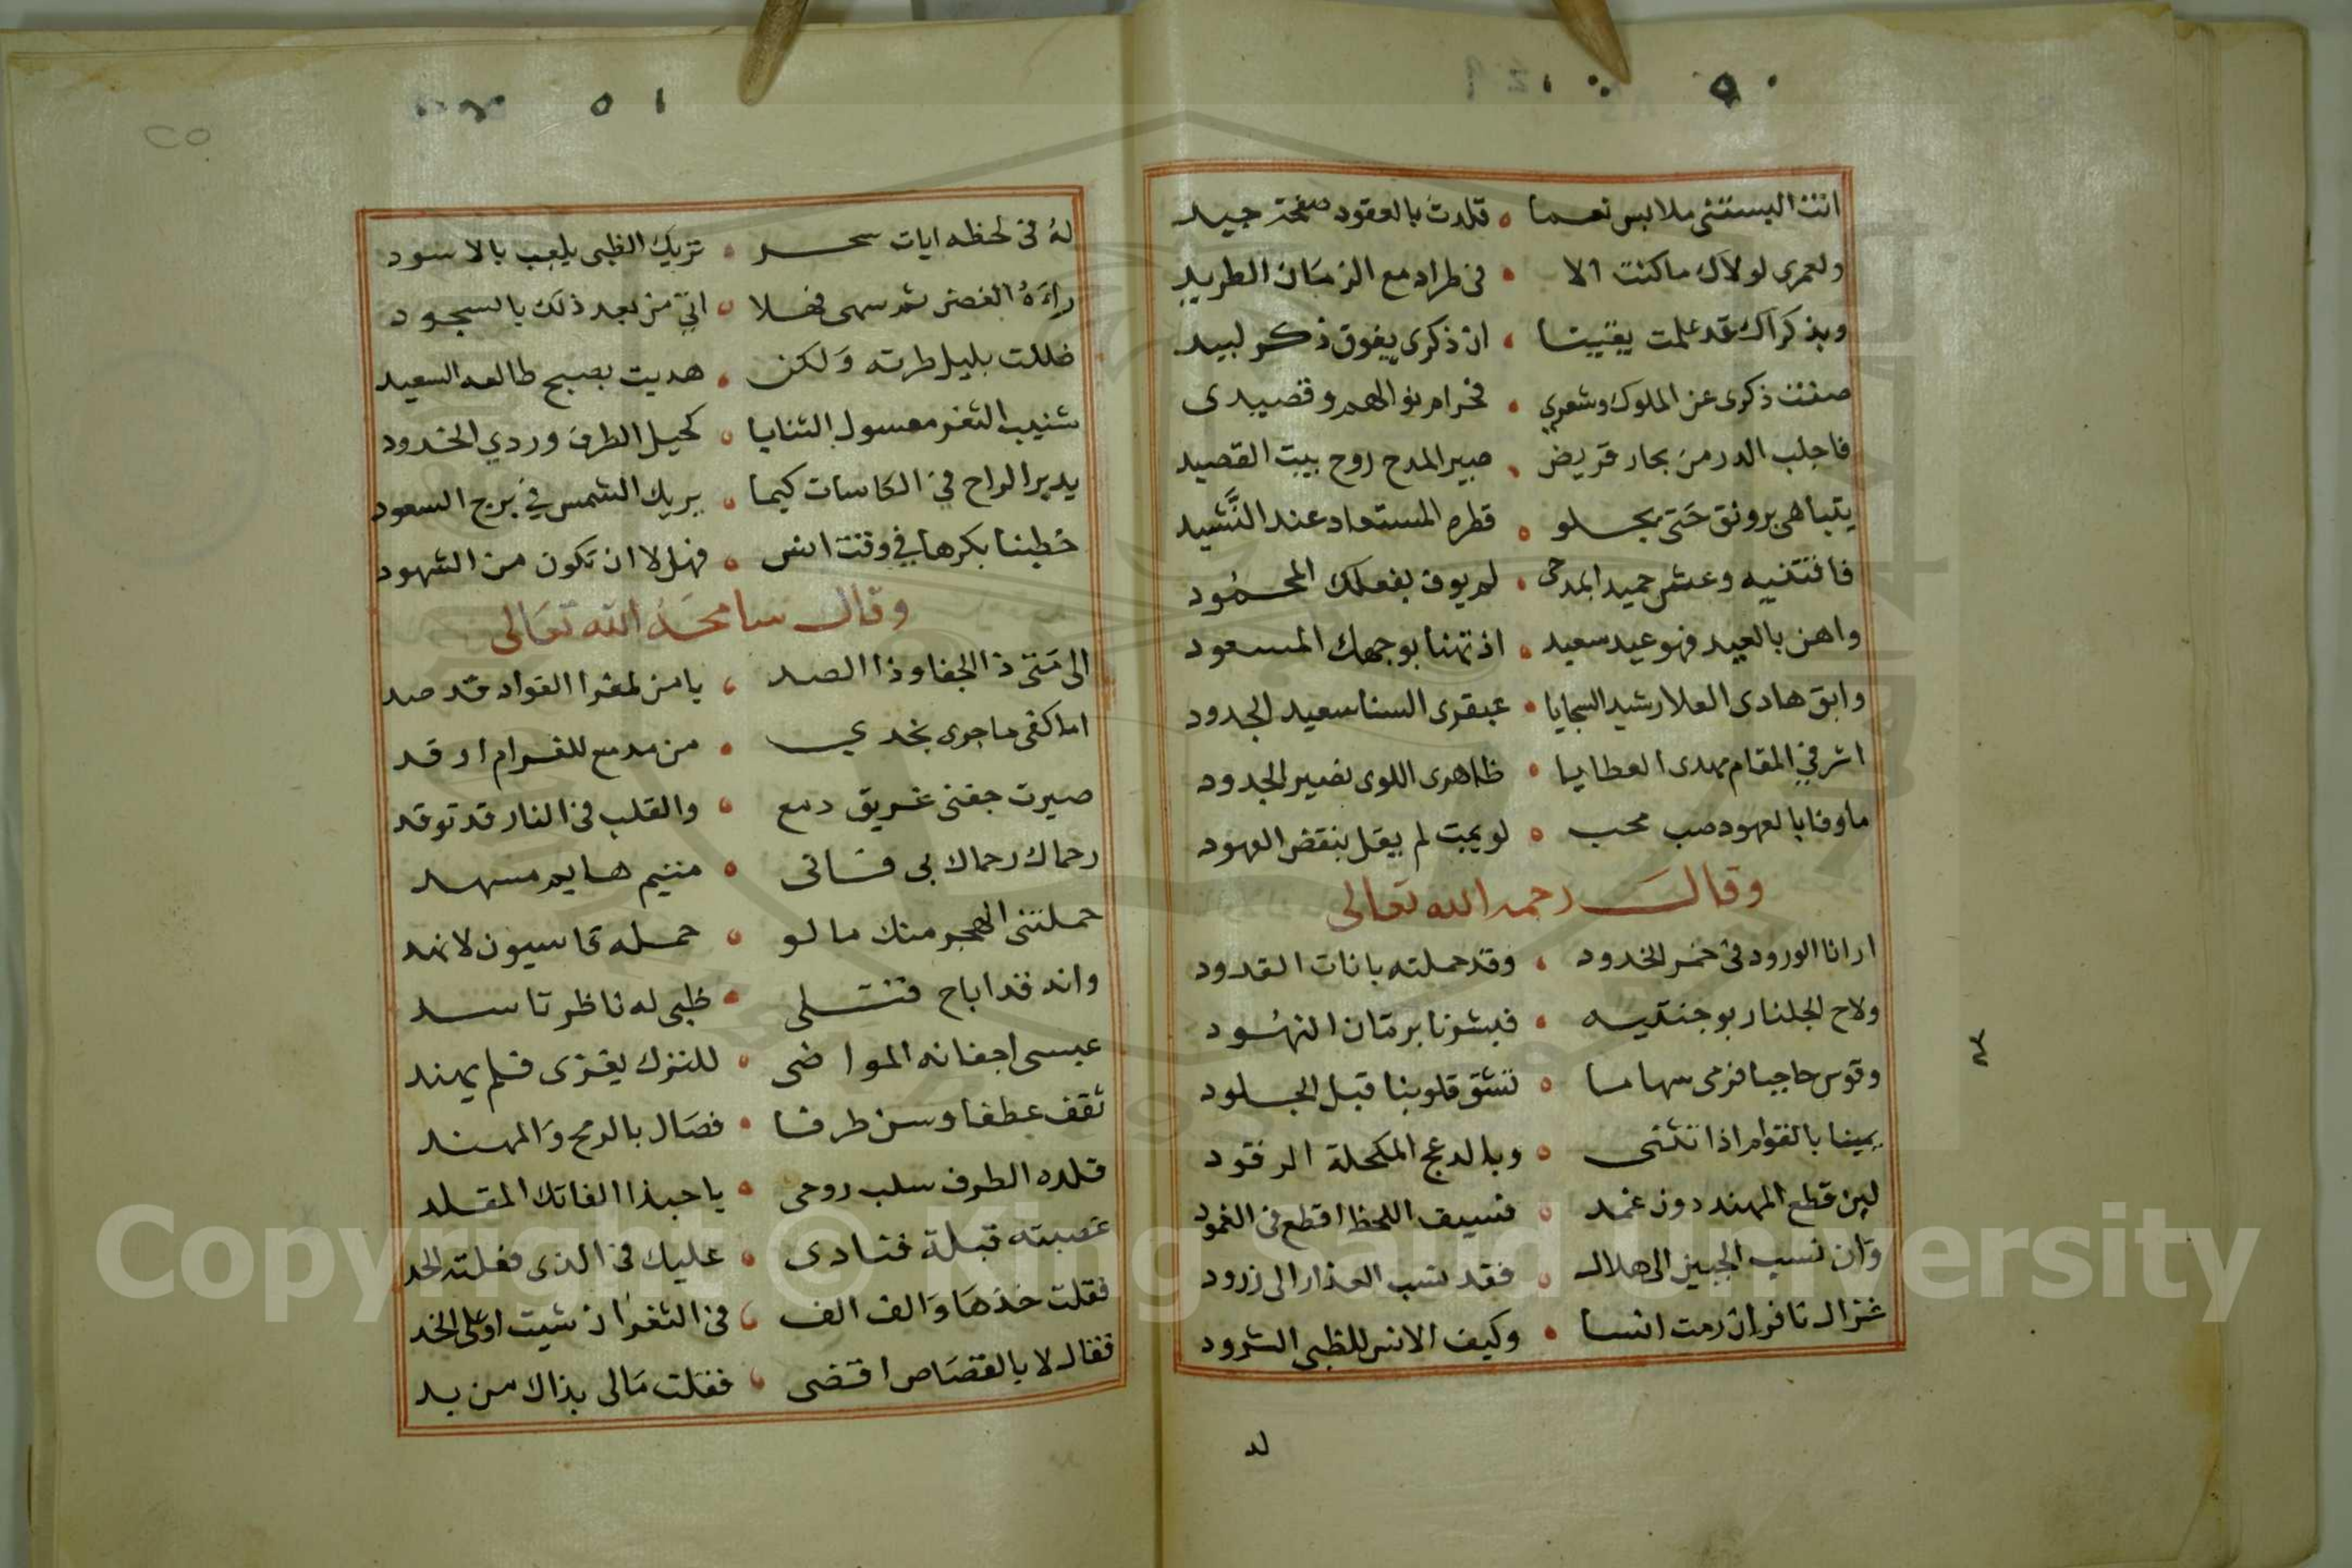 ٥٠
انت البستني ملابس نعما • قلدت بالعقود صفحة جيد
ولعمرى لولاك ما كنت الا • فى طراد مع الزمان الطريد
وبذكراك قد علمت يقينا • ان ذكرى يفوق ذكر لبيد
صنت ذكرى عن الملوك وشعري • وقصيدى
فاجلب الدر من بحار قريض • صير المدح روح بيت القصيد
يتباهى برونق حتى يحلو • قطره المستعاد عند النشيد
وعش حميد المدحى • لم يوف بفعلك المحمود
واهن بالعيد فهو عيد سعيد • اذ تهنا بوجهك المسعود
وابق هادى العلا رشيد السجايا • عبقرى السنا سعيد الجدود
اشرفي المقام مهدى العطايا • ظاهرى اللوى نصير الجدود
ما وفا بالعهود صب محب • لو يمت لم يقل بنقض العهود
وقال رحمه الله تعالى
ارانا الورود فى خمر الخدود • وقد حملته بانات القدود
ولاح الجلنار بوجنتيه • فبشرنا برمان النهود
وقوس حاجبا فرمى سهاما • تشق قلوبنا قبل الجلود
يمينا بالقوام اذا تثنى • وبالدعج المكحلة الرقود
لين قطع المهند دون غمد • فسيف اللحظ اقطع فى الغمود
وان نسب الجبين الى هلال • فقد نسب العذار الى زرود
غزال نافر ان رمت انسا • وكيف الانس للظبى الشرود
لد
٥١
له فى لحظه ايات سحر • تريك الظبى يلعب بالاسود
راءه الغصن ثم سهى فهلا • اتي من بعد ذلك بالسجود
ضللت بليل طرته ولكن • هديت بصبح طالعه السعيد
شنيب الثغر معسول الثنايا • كحيل الطرف وردي الخدود
يدير الراح في الكاسات كيما • يريك الشمس في برج السعود
خطبنا بكرها في وقت انس • فهل لا ان تكون من الشهود
وقال سامحه الله تعالى
الى متى ذا الجفا وذا الصد • يا من لمغرا الفواد قد صد
اما كفى ما جرى بخدي • من مدمع للغرام اوقد
صيرت جفنى غريق دمع • والقلب فى النار قد توقد
رحماك رحماك بى فانى • متيم هايم مسهد
حملتنى الهجر منك ما لو • حمله قاسيون لانهد
وانه قد اباح قتلى • ظبى له ناظر تاسد
عيسى اجفانه المواضى • للترك يعزى فلم يهند
ثقف عطفا وسن طرفا • فصال بالرمح والمهند
قلده الطرف سلب روحى • يا حبذا الفاتك المقلد
غصبته قبلة فنادى • عليك فى الذى فعلته الحد
فقلت خذها والف الف • فى الثغر ان شيت او على الخد
فقال لا بالقصاص اقضى • فقلت مالى بذاك من يد
Copyright © King Saud University